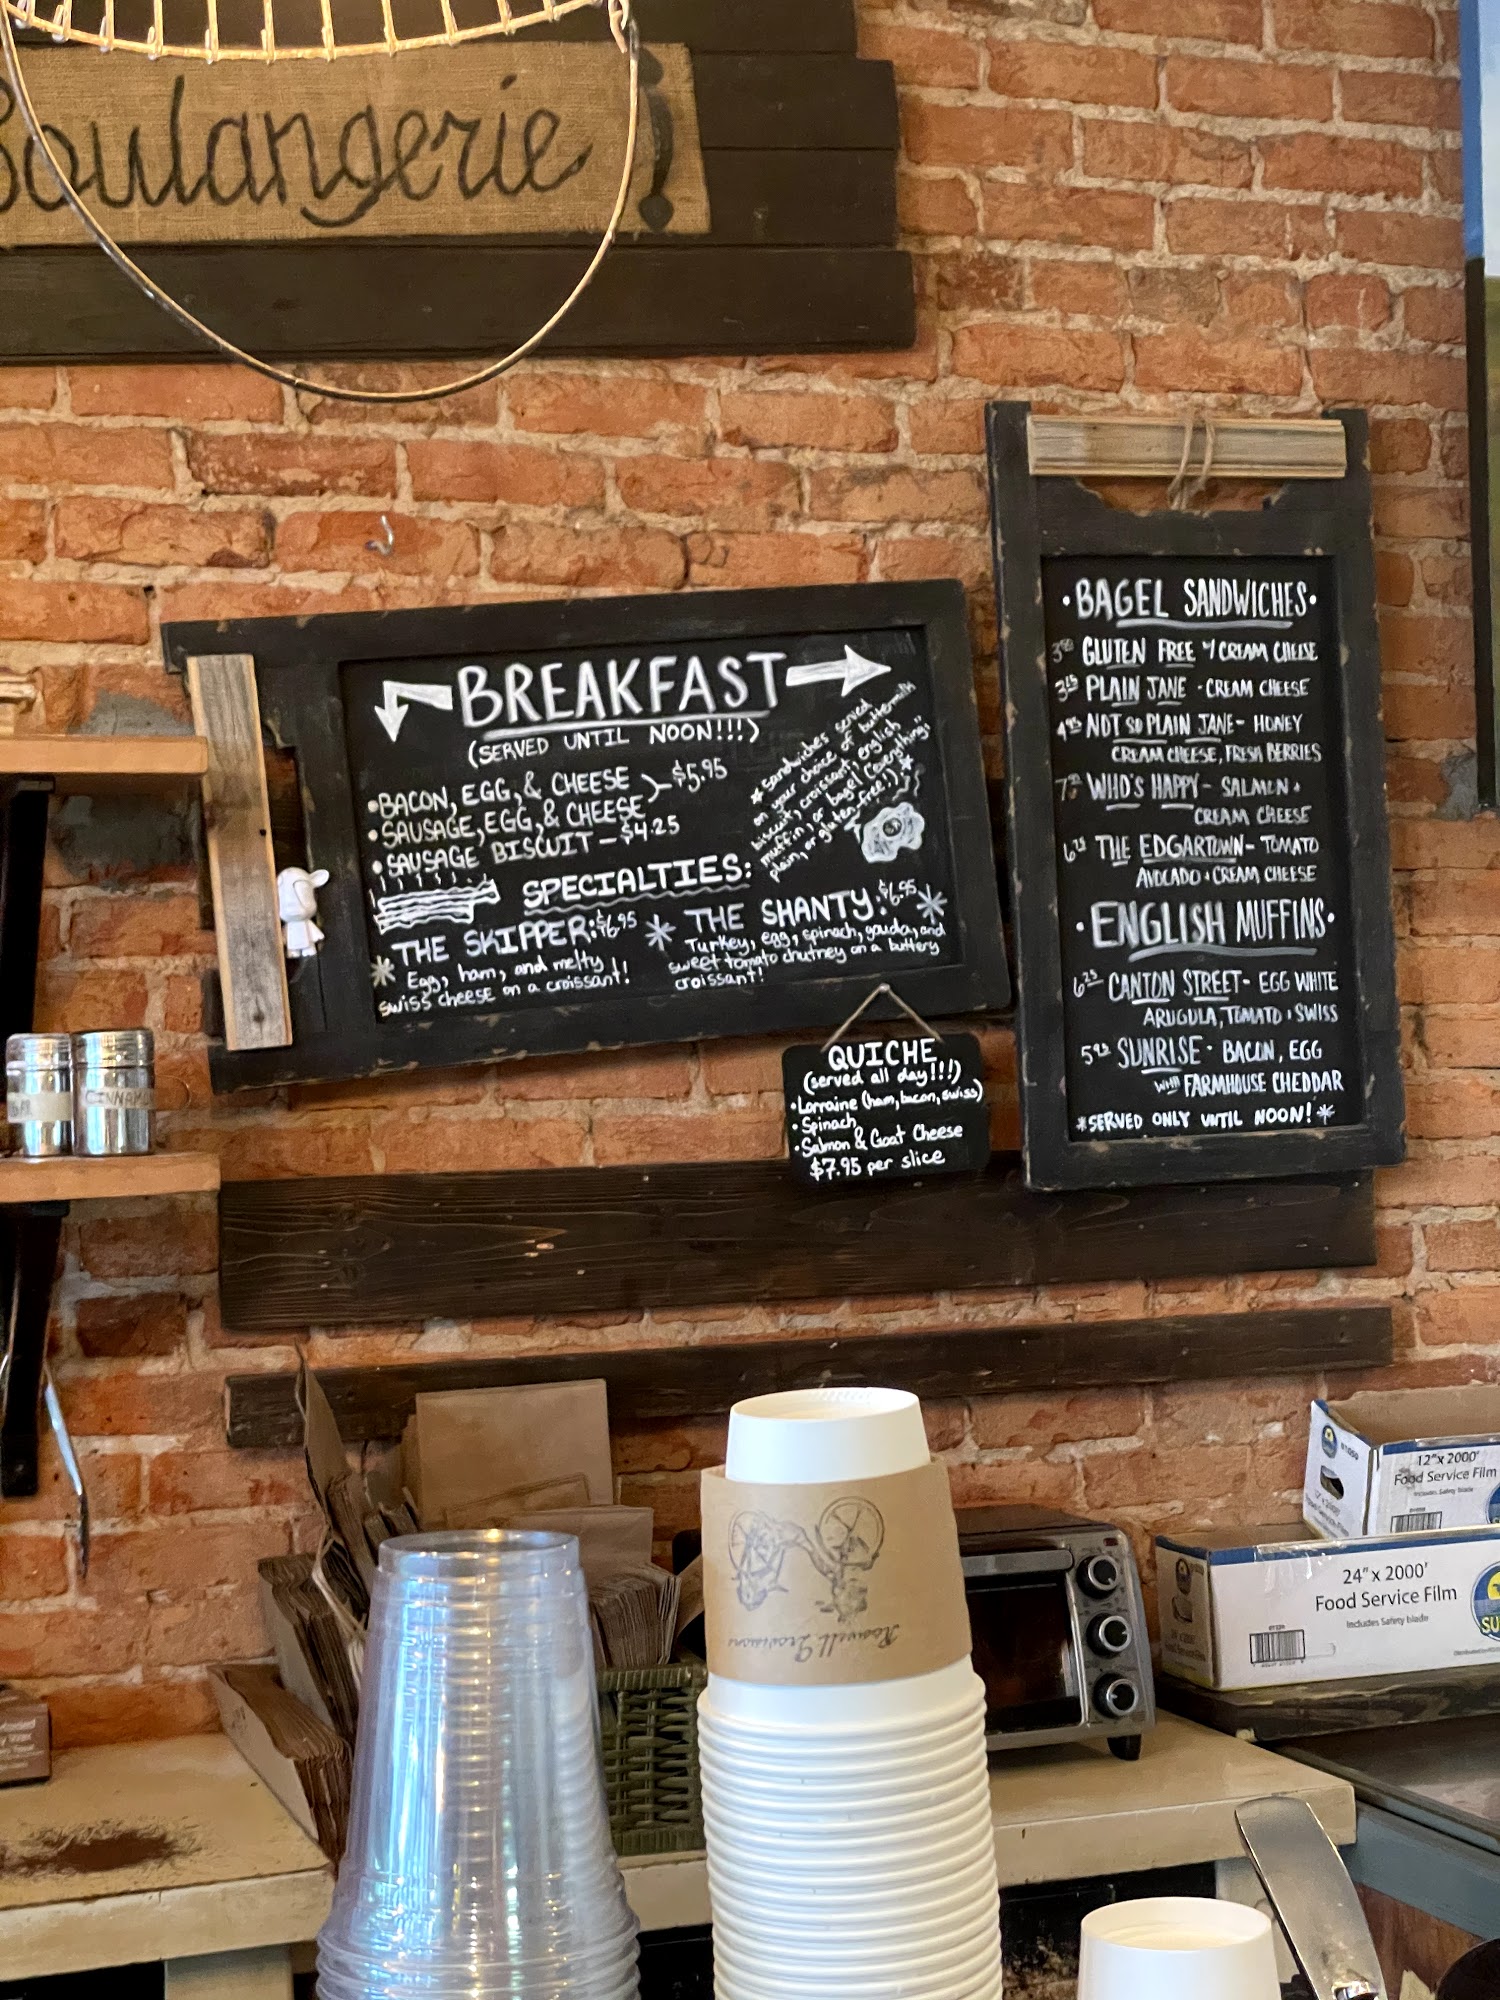 Boulangerie
BREAKFAST
(SERVED UNTIL NOON!!!)
•BACON, EGG, & CHEESE
•SAUSAGE, EGG, & CHEESE
$5.95
•SAUSAGE BISCUIT - $4.25
*Sandwiches served
on your choice of buttermilk
biscuit, croissant, english
muffin, or bagel ("everything,"
plain, or gluten-free!)*
SPECIALTIES:
THE SKIPPER: $6.95
Egg, ham, and melty
swiss cheese on a croissant!
THE SHANTY: $6.95
Turkey, egg, spinach, gouda, and
sweet tomato chutney on a buttery
croissant!
QUICHE
(served all day!!!)
•Lorraine (ham, bacon, swiss)
•Spinach
•Salmon & Goat Cheese
$7.95 per slice
•BAGEL SANDWICHES•
GLUTEN FREE w/ CREAM CHEESE
PLAIN JANE - CREAM CHEESE
NOT SO PLAIN JANE - HONEY
CREAM CHEESE, FRESH BERRIES
WHO'S HAPPY - SALMON +
CREAM CHEESE
6.25 THE EDGARTOWN - TOMATO
AVOCADO + CREAM CHEESE
•ENGLISH MUFFINS•
6.25 CANTON STREET - EGG WHITE
ARUGULA, TOMATO + SWISS
SUNRISE - BACON, EGG
WITH FARMHOUSE CHEDDAR
*SERVED ONLY UNTIL NOON!*
CINNAM
Roswell Provisions
12" x 2000'
Food Service Film
Includes Safety blade
24" x 2000'
Food Service Film
Includes Safety blade
SU